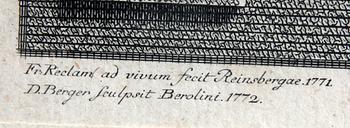 Fr. Reclam, ad vivum fecit Reinsbergae. 1771.
D. Berger sculpsit Berolini. 1772.